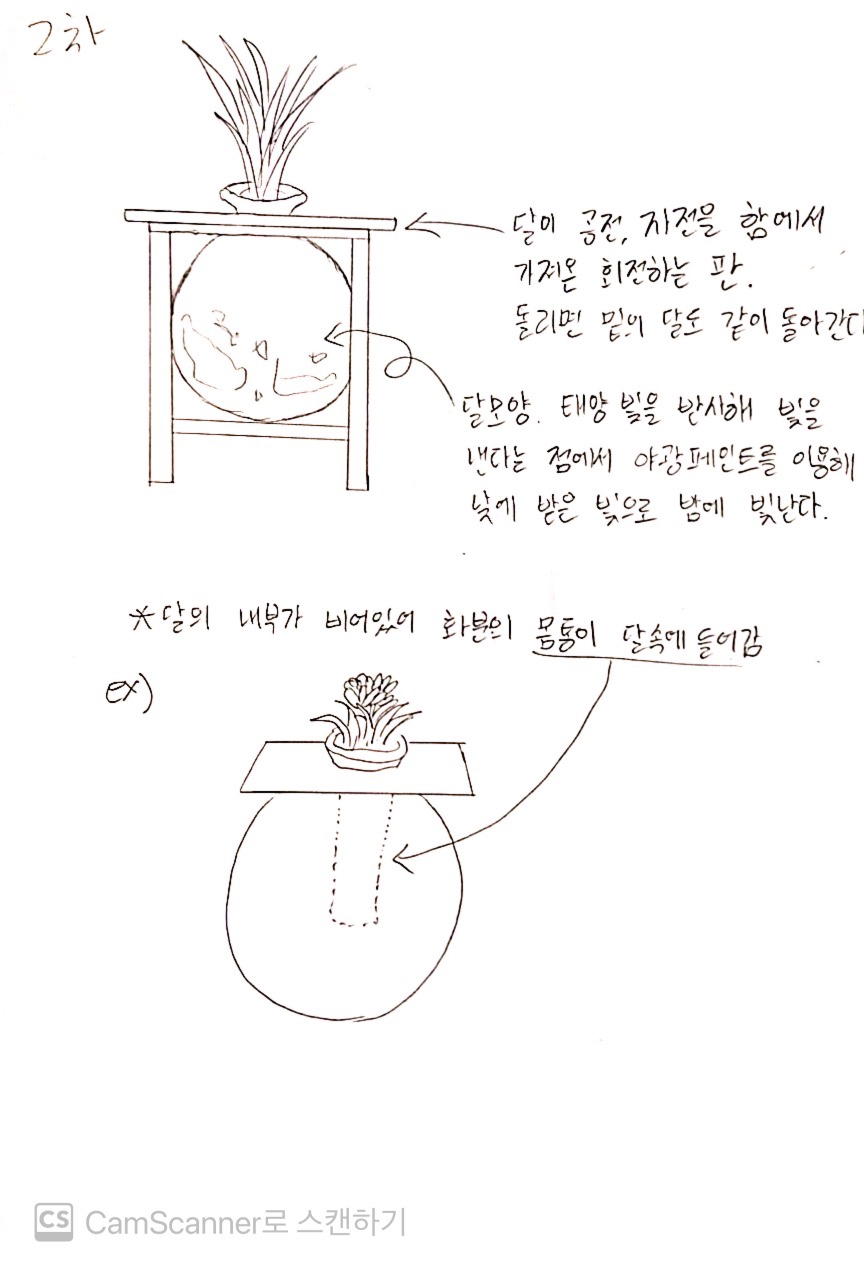 2차
달이 공전, 자전을 함에서
가져온 회전하는 판.
돌리면 밑의 달도 같이 돌아간다
달모양. 태양 빛을 반사해 빛을
낸다는 점에서 야광페인트를 이용해
낮에 받은 빛으로 밤에 빛난다.
*달의 내부가 비어있어 화분의 몸통이 달속에 들어감
ex)
CS CamScanner로 스캔하기